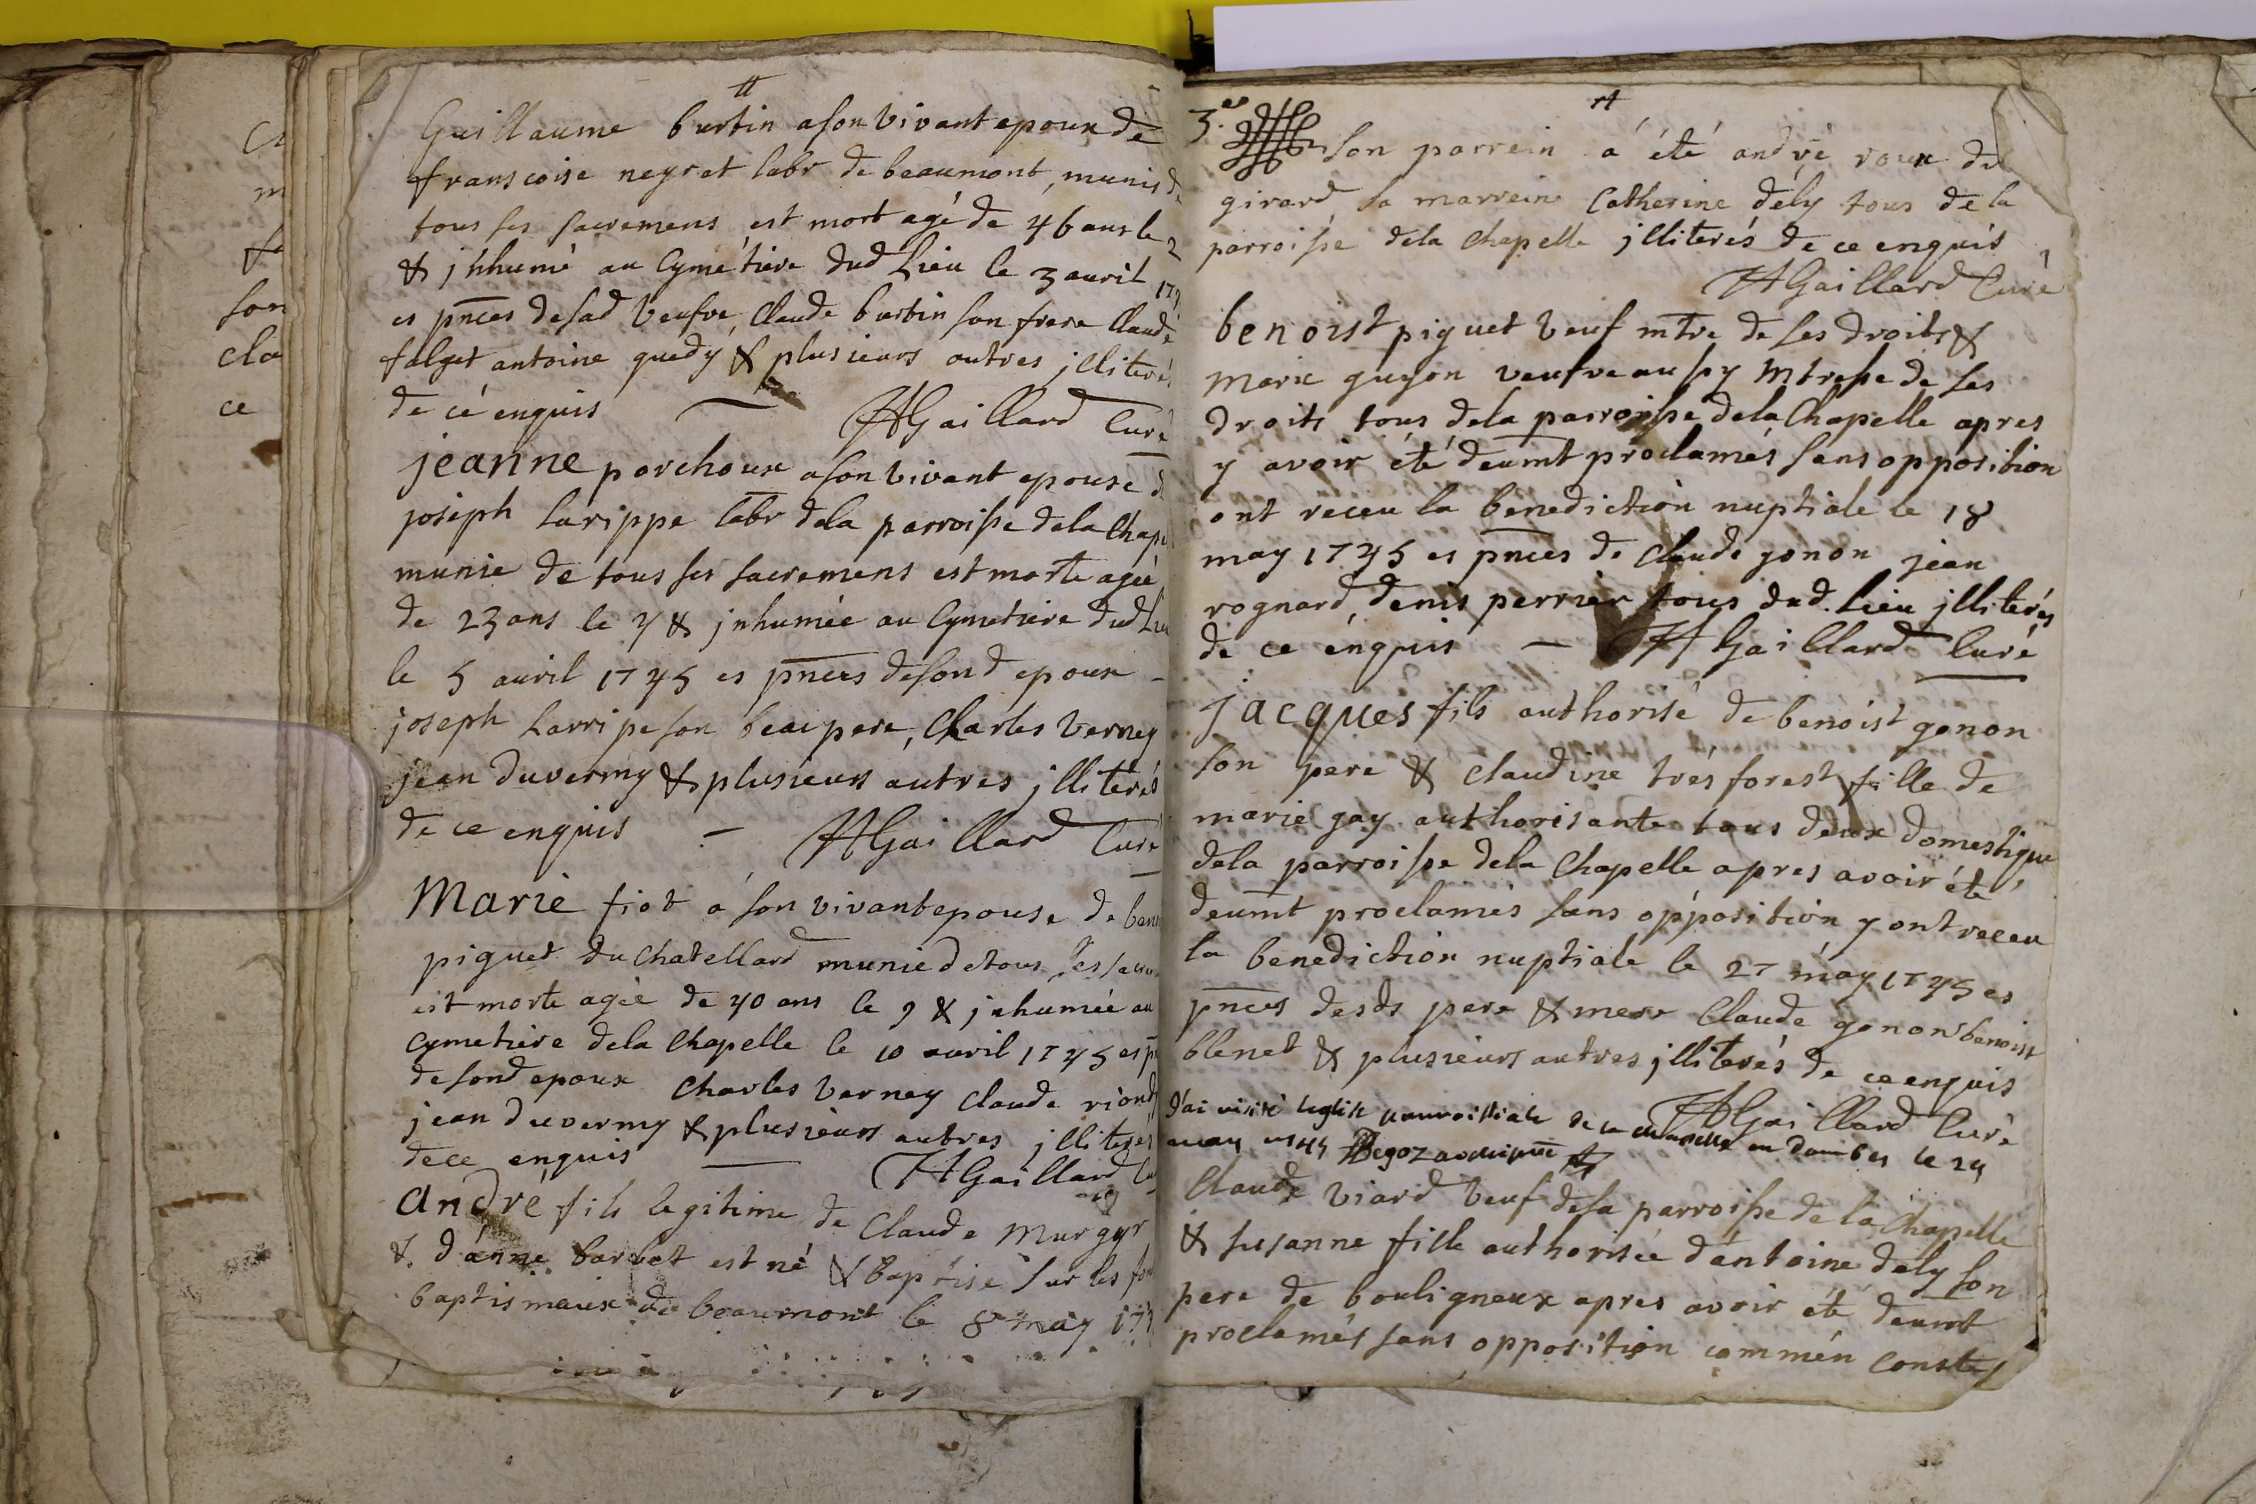 Guillaume burtin a son vivant epoux de
franscoise neyret labr de beaumont, munis de
tous ses sacremens est mort agé de 46 ans le 2
& jnhumé au Cymetiere dud Lieu le 3 avril 174
es pnces de sad veufve, Claude burtin son frere Claude
falget antoine guedy & plusieurs autres jlliterés
de ce enquis HGaillard Curé
jeanne porchoux a son vivant epouse de
joseph Larippe labr dela parroisse dela Chape
munie de tous ses sacremens est morte agée
de 23 ans le 4 & jnhumée au Cymetiere dud Lieu
le 5 avril 1745 es pnces de sond epoux
joseph Larripe son beau pere, Charles Verney
jean duvermy & plusieurs autres jlliterés
de ce enquis HGaillard Curé
Marie fiot a son vivant epouse de ben
piguet du Chatellard munie de tous ses sacre
est morte agée de 40 ans le 9 & jnhumée au
Cymetiere dela Chapelle le 10 avril 1745 es pn
de sond epoux Charles Verney Claude riond
jean duvermy & plusieurs autres jlliterés
de ce enquis HGaillard Cu
André fils legitime de Claude Murgyr
& d'anne barbet est né & Baptisé sur les fon
baptismaux de beaumont le 8 may 174
3.e son parrein a été andré roux de
girard sa marreine Catherine dély tous de la
parroisse dela Chapelle jlliterés de ce enquis
HGaillard Curé
benoist piguet Veuf mtre de ses droits &
Marie guyon veufve aussy Mtresse de ses
droits tous dela parroisse dela Chapelle apres
y avoir été deumt proclamés sans opposition
ont receu la benediction nuptiale le 18
may 1745 es pnces de Claude gonon jean
rognard, denis perrier tous dud. Lieu jlliterés
de ce enquis HGaillard Curé
jacques fils authorisé de benoist gonon
son pere & Claudine trés forest fille de
marie gay authorisante tous deux domestique
dela parroisse dela Chapelle apres avoir été
deumt proclamés sans opposition y ont receu
la benediction nuptiale le 27 may 1745 es
pnces desds pere & mere Claude gonon benoist
blenet & plusieurs autres jlliterés de ce enquis
HGaillard Curé
J'ai visité leglise parroissiale de la chapelle en Dombes le 29
may 1745
Claude Viard Veuf de la parroisse de la Chapelle
& susanne fille authorisée d'antoine dely son
pere de bouligneux apres avoir été deumt
proclamés sans opposition comm'en conste
son
cla
ce